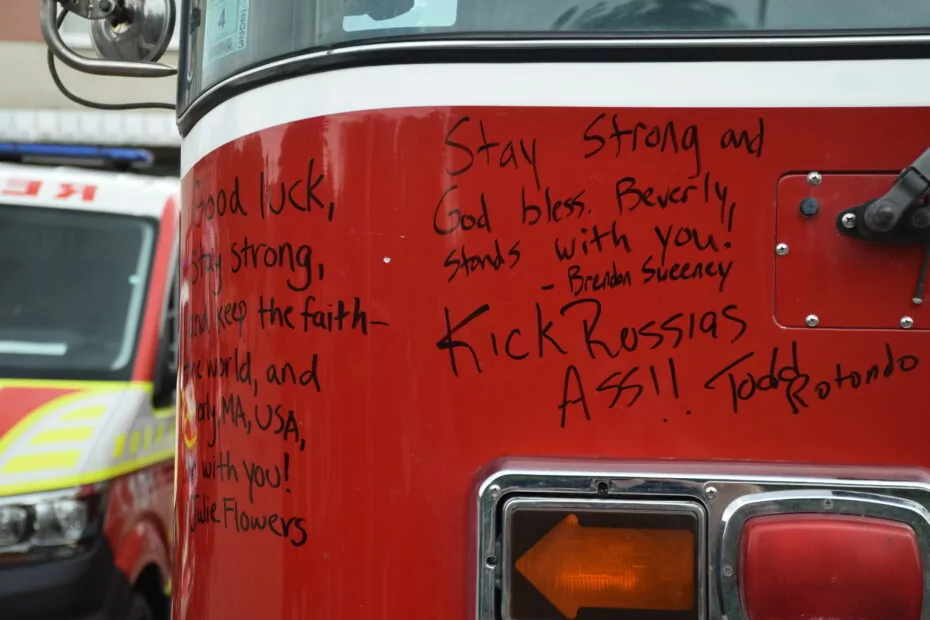 4
Good luck,
stay strong,
and keep the faith–
the world, and
erly, MA, USA,
with you!
Julie Flowers
Stay Strong and
God bless. Beverly,
stands with you!
- Brendan Sweeney
Kick Russias
Ass!! Todd
Rotondo